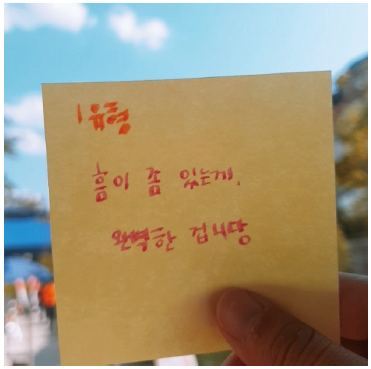 1유형
흠이 좀 있는게,
완벽한 겁니당